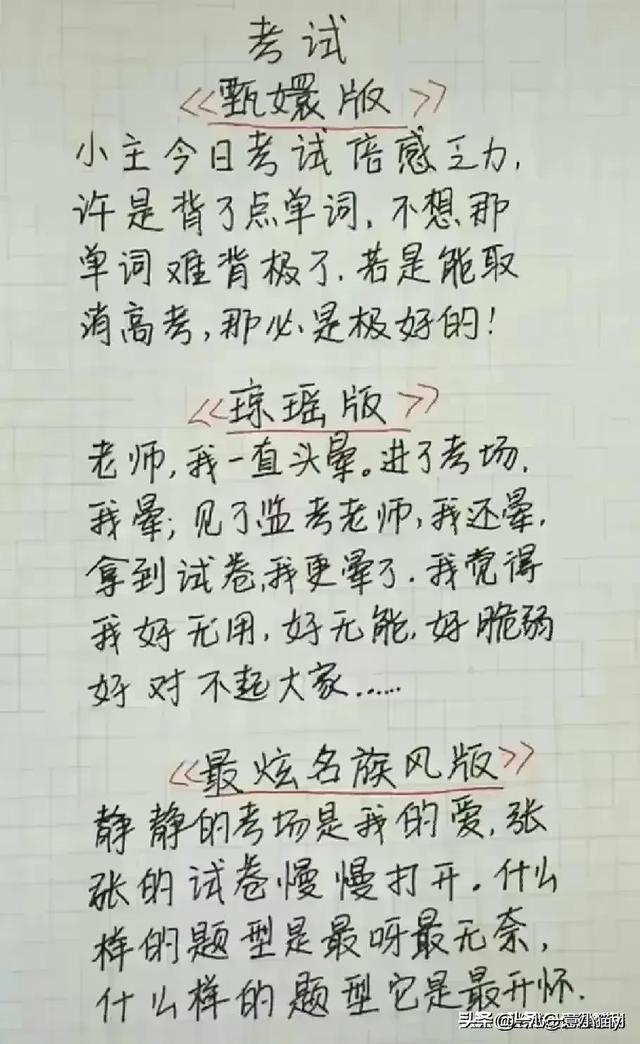 考试
《甄嬛版》
小主今日考试倍感乏力，
许是背了点单词，不想那
单词难背极了，若是能取
消高考，那必是极好的！
《琼瑶版》
老师，我一直头晕。进了考场，
我晕；见了监考老师，我还晕，
拿到试卷，我更晕了，我觉得
我好无用，好无能，好脆弱
好对不起大家……
《最炫名族风版》
静静的考场是我的爱，张
张的试卷慢慢打开。什么
样的题型是最呀最无奈，
什么样的题型它是最开怀．
头条